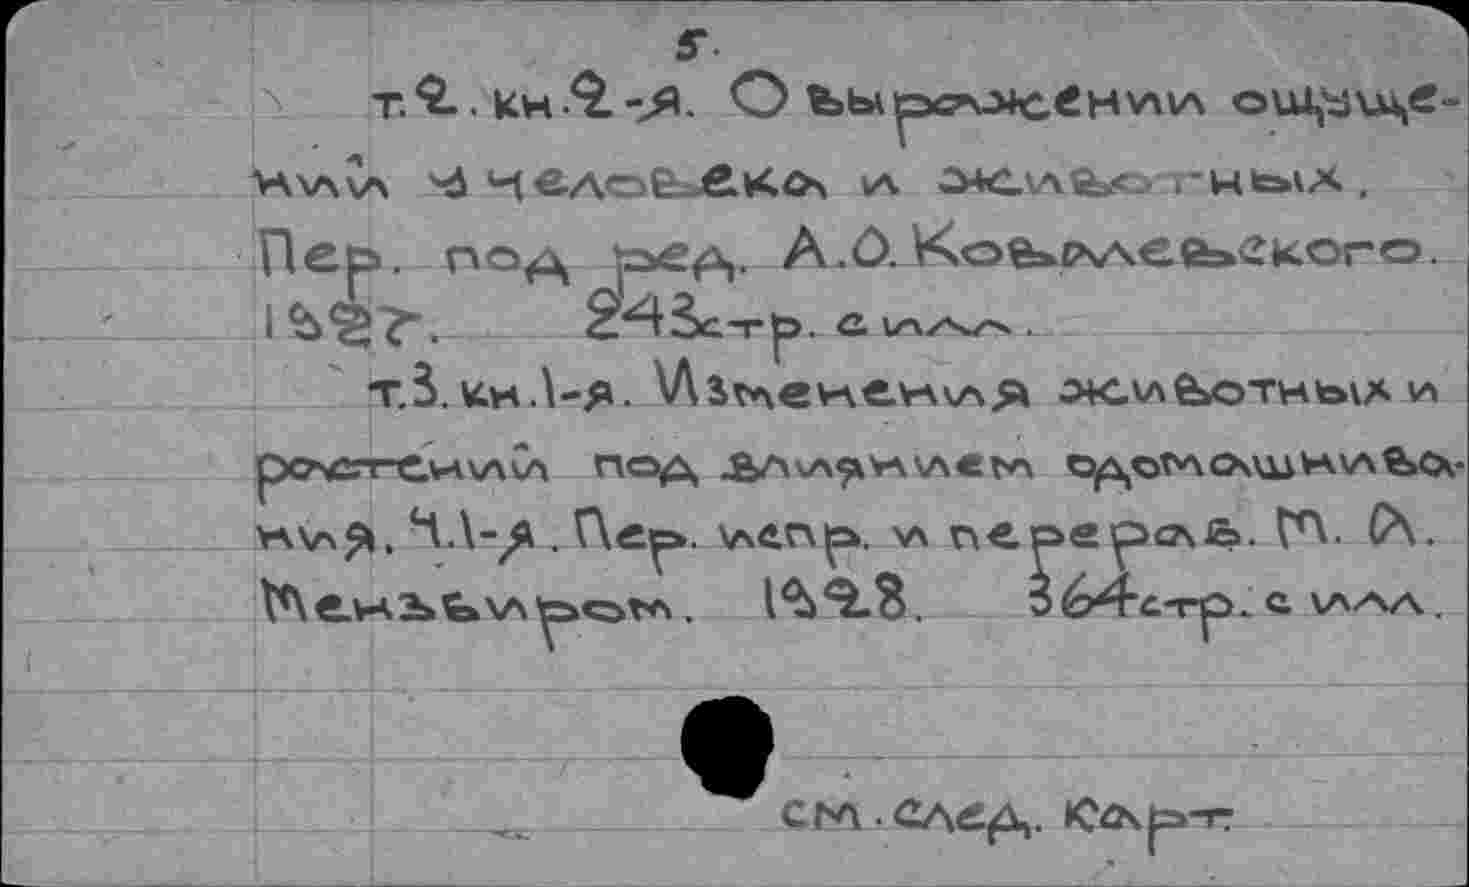 5.
т.2. кн.2-я. О выражении ощуще-
ний у человека и животных.
Пер. под ред. А.О. Ковалевского.
1927. 243стр. с илл.
т.3. кн.1-я. Изменения животных и
растений под влиянием одомашнива-
ния. Ч.1-я. Пер. испр. и перераб. М. А.
Мензбиром. 1928. 364стр. с илл.
см. след. карт.